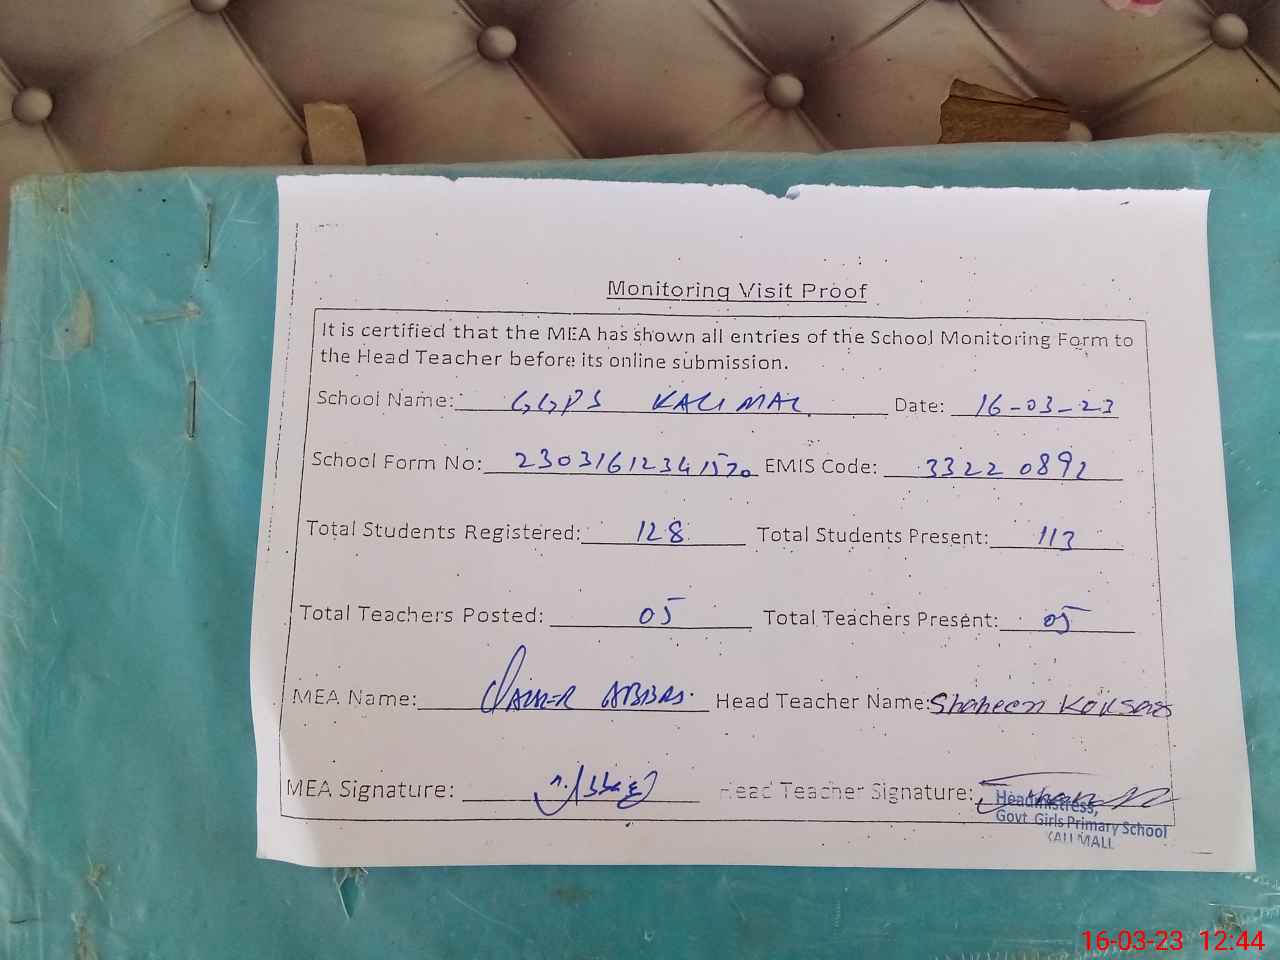 Monitoring Visit Proof
It is certified that the MEA has shown all entries of the School Monitoring Form to
the Head Teacher before its online submission.
School Name: GGPS KALI MAL Date: 16-03-23
School Form No: 23031612341570 EMIS Code: 33220892
Total Students Registered: 128 Total Students Present: 113
Total Teachers Posted: 05 Total Teachers Present: 05
MEA Name: ABBAS Head Teacher Name: Shaheen
MEA Signature: Head Teacher Signature:
Headmistress,
Govt Girls Primary School
KALI MALL
16-03-23 12:44